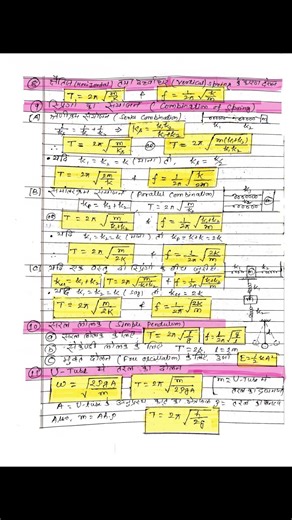 ⑧ क्षैतिज (Horizontal) तथा ऊर्ध्वाधर (Vertical) Spring के कारण दोलन
T = 2π √(m/k) & f = 1/2π √(k/m)
⑨ स्प्रिंगों का संयोजन (Combination of Spring)
[A] श्रेणीक्रम संयोजन (Series Combination)
1/ks = 1/k1 + 1/k2 ⇒ ks = k1k2/(k1+k2)
∴ T = 2π √(m/ks) or T = 2π √(m(k1+k2)/k1k2)
• यदि k1 = k2 = k (माना) तो, ks = k/2
T = 2π √(2m/k) & f = 1/2π √(k/2m)
[B] समान्तरक्रम संयोजन (Parallel Combination)
kp = k1+k2 T = 2π √(m/kp)
or T = 2π √(m/(k1+k2)) & f = 1/2π √((k1+k2)/m)
• यदि k1 = k2 = k (माना) तो kp = k+k = 2k
∴ T = 2π √(m/2k) & f = 1/2π √(2k/m)
[C] यदि एक वस्तु दो स्प्रिंगों के बीच
T = 2π √(m/(k1+k2)) & f = 1/2π √((k1+k2)/m)
• यदि k1 = k2 = k 2k
T = 2π √(m/2k) & f = 1/2π √(2k/m)
⑩ सरल लोलक (Simple Pendulum)
ⓐ सरल लोलक के लिए T = 2π √(l/g) f = 1/2π √(g/l)
ⓑ सेकेण्डी लोलक के लिए T = 2s, l = 1m
ⓒ मुक्त दोलन (Free oscillation) के लिए ऊर्जा E = 1/2 kA²
⑪ U-Tube में द्रव का दोलन
ω = √(2ρgA/m) T = 2π √(m/2ρgA)
A = U-tube के अनुप्रस्थ काट का क्षेत्रफल ρ = तरल का घनत्व
Also, m = Ahρ T = 2π √(h/2g)